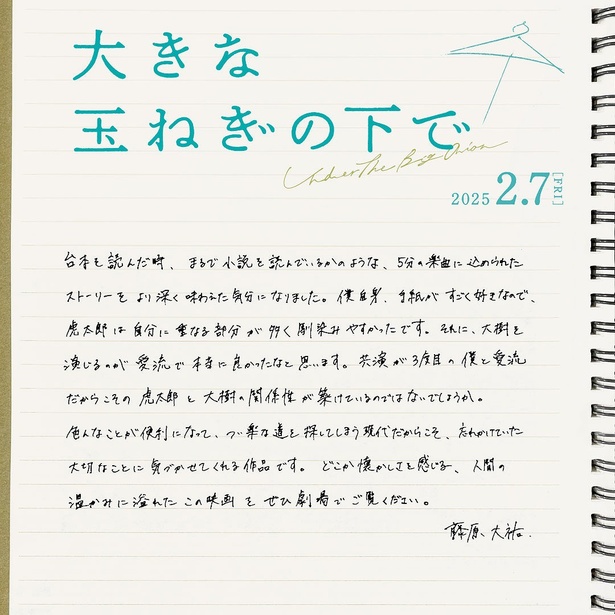 大きな
玉ねぎの下で
Under The Big Onion
2025 2.7 [FRI]
台本を読んだ時、まるで小説を読んでいるかのような、5分の楽曲に込められた
ストーリーをより深く味わえた気分になりました。僕自身、手紙がすごく好きなので、
虎太郎は自分に重なる部分が多く馴染みやすかったです。それに、大樹を
演じるのが愛流で本当に良かったなと思います。共演が3度目の僕と愛流
だからこその虎太郎と大樹の関係性が築けているのではないでしょうか。
色んなことが便利になって、つい楽な道を探してしまう現代だからこそ、忘れかけていた
大切なことに気づかせてくれる作品です。どこか懐かしさを感じる、人間の
温かみに溢れたこの映画をぜひ劇場でご覧ください。
藤原大祐.